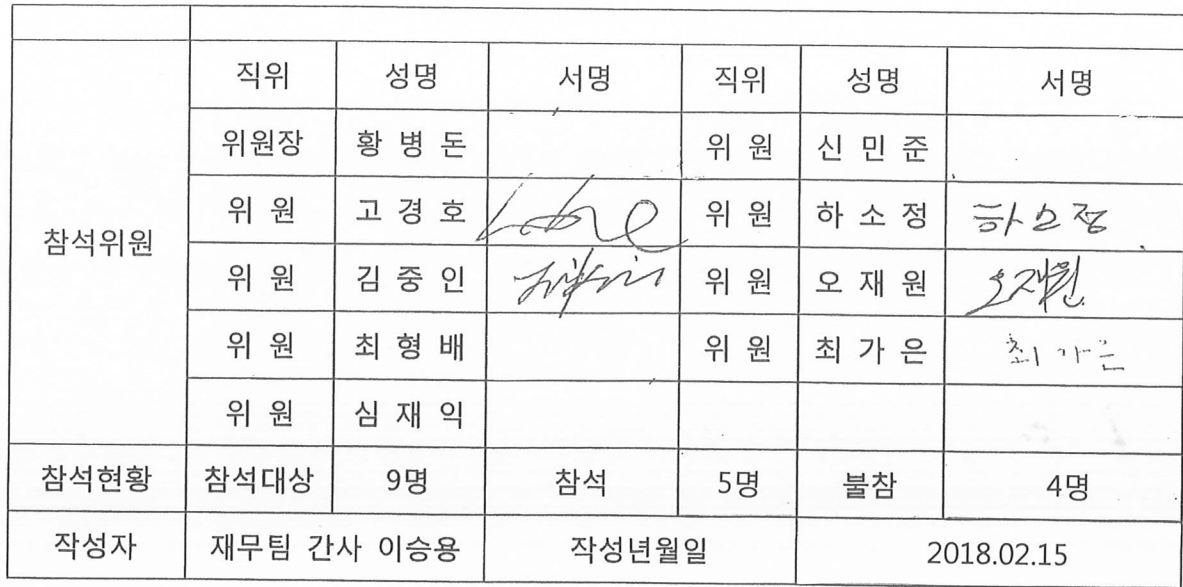 직위 성명 서명 직위 성명 서명
위원장 황 병 돈 위 원 신 민 준
위 원 고 경 호 위 원 하 소 정 하소정
참석위원
위 원 김 중 인 위 원 오 재 원 오재원
위 원 최 형 배 위 원 최 가 은 최가은
위 원 심 재 익
참석현황 참석대상 9명 참석 5명 불참 4명
작성자 재무팀 간사 이승용 작성년월일 2018.02.15